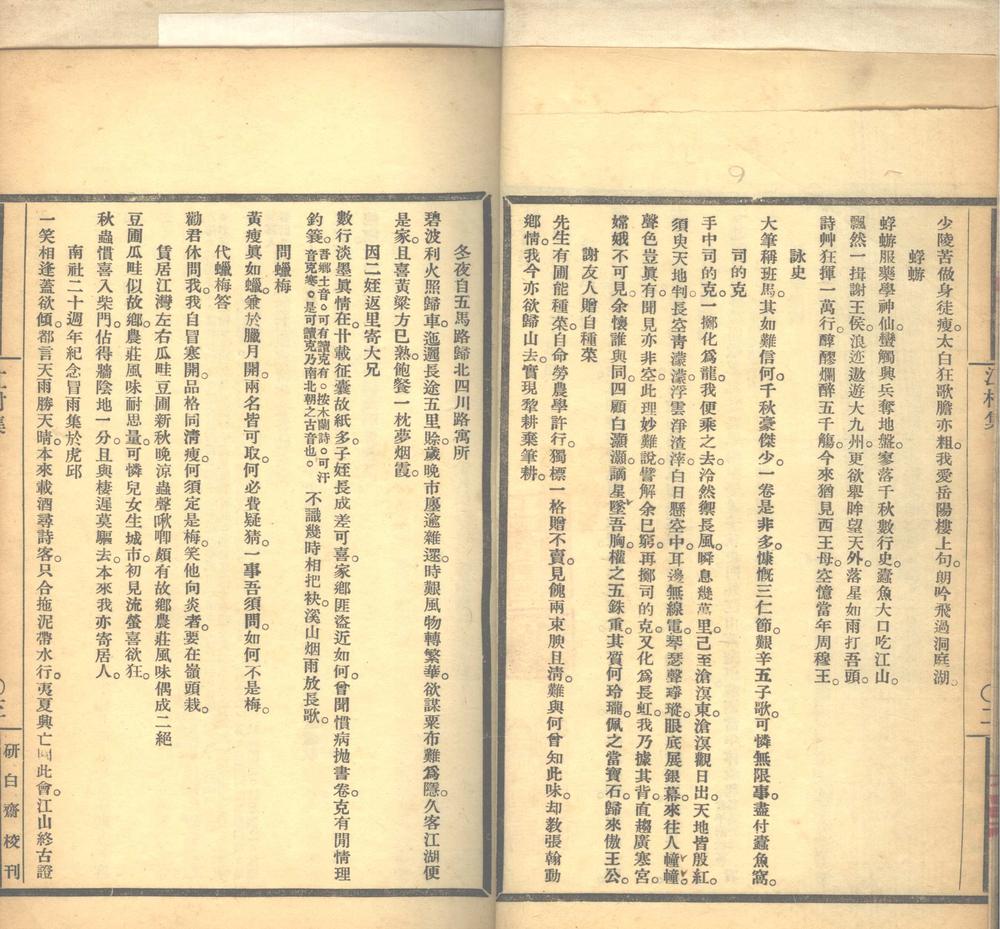 少陵苦做身徒瘦。太白狂歌膽亦粗。我愛岳陽樓上句。朗吟飛過洞庭湖。
蜉蝣
蜉蝣服藥學神仙。蠻觸興兵奪地盤。寥落千秋數行史。蠹魚大口吃江山。
飄然一揖謝王侯。浪迹遨遊大九州。更欲舉眸望天外。落星如雨打吾頭。
詩艸狂揮一萬行。醇醪爛醉五千觴。今來猶見西王母。空憶當年周穆王。
詠史
大筆稱班馬。其如難信何。千秋豪傑少。一卷是非多。慷慨三仁節。艱辛五子歌。可憐無限事。盡付蠹魚窩。
司的克
手中司的克。一擲化爲龍。我便乘之去。泠然禦長風。瞬息幾萬里。己至滄溟東。滄溟觀日出。天地皆殷紅。
須臾天地判。長空青濛濛。浮雲淨渣滓。白日懸空中。耳邊無線電。琴瑟聲琤瑽。眼底展銀幕。來往人幢幢。
聲色豈眞有。聞見亦非空。此理妙難說。譬解余巳窮。再擲司的克。又化爲長虹。我乃據其背。直趨廣寒宮。
嫦娥不可見。余懷誰與同。四顧白灝灝。謫星墜吾胸。權之五銖重。其質何玲瓏。佩之當寶石。歸來傲王公。
謝友人贈自種菜
先生有圃能種菜。自命勞農學許行。獨標一格贈不賣。見餽兩束腴且淸。難與何曾知此味。却敎張翰動
鄉情。我今亦欲歸山去。實現犂耕棄筆耕。
冬夜自五馬路歸北四川路寓所
碧波利火照歸車。迤邐長途五里賒。歲晚市廛逾雜遝。時艱風物轉繁華。欲謀粟布難爲隱。久客江湖便
是家。且喜黃粱方巳熟。飽餐一枕夢烟霞。
因二姪返里寄大兄
數行淡墨異情在。廿載征囊故紙多。子姪長成差可喜。家鄉匪盜近如何。曾聞慣病拋書卷。克有閒情理
釣簑。吾鄉土音。可有讀克有。按木蘭詩。可汗音克寒。是可讀克乃南北朝之古音也。不識幾時相把袂。溪山烟雨放長歌。
問蠟梅
黃瘦眞如蠟。兼於臘月開。兩名皆可取。何必費疑猜。一事吾須問。如何不是梅。
代蠟梅答
勸君休問我。我自冒寒開。品格同淸瘦。何須定是梅。笑他向炎者。要在嶺頭栽。
賃居江灣左右瓜畦豆圃新秋晚涼蟲聲啾唧頗有故鄉農莊風味偶成二絕
豆圃瓜畦似故鄉。農莊風味耐思量。可憐兒女生城市。初見流螢喜欲狂。
秋蟲慣喜入柴門。佔得牆陰地一分。且與棲遲莫驅去。本來我亦寄居人。
南社二十週年紀念冒雨集於虎邱
一笑相逢蓋欲傾。都言天雨勝天晴。本來載酒尋詩客。只合拖泥帶水行。夷夏興亡同此會。江山終古證
研白齋校刊